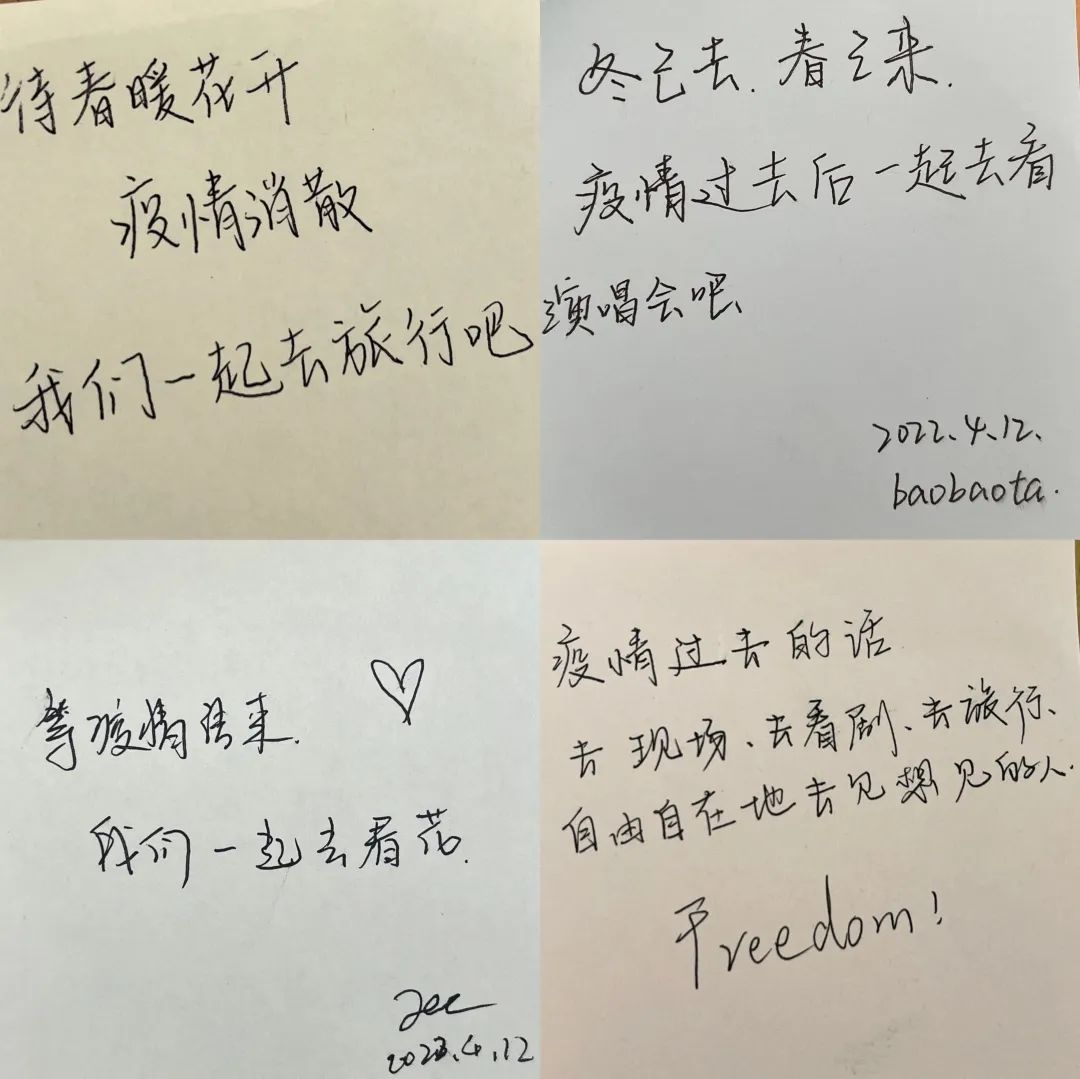 待春暖花开
疫情消散
我们一起去旅行吧
冬已去.春已来.
疫情过去后一起去看
演唱会吧、
2022.4.12.
baobaota.
等疫情结束.
我们一起去看花.
2022.4.12
疫情过去的话
去现场、去看剧、去旅行、
自由自在地去见想见的人.
Freedom!